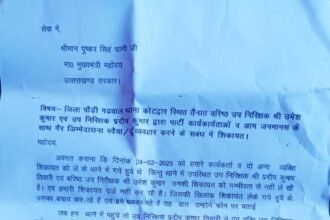 सेवा में,
श्रीमान पुष्कर सिंह धामी जी
मा0 मुख्यमंत्री महोदय
उत्तराखण्ड सरकार।
विषय:- जिला पौड़ी गढवाल थाना कोटद्वार स्थित तैनात वरिष्ठ उप निरिक्षक श्री उमेश
कुमार एवं उप निरिक्षक प्रदीप कुमार द्वारा पार्टी कार्यकार्यताओं व आम जनमानस
के साथ गैर जिम्मेदाराना रवैया/दुर्व्यवहार करने के सबंध में शिकायत।
महोदय,
अवगत कराना कि दिनांक 24-02-2025 को हमारे कार्यकर्ता व दो अन्य व्यक्ति
शिकायत को ले के थाने में गये हुये थे किन्तु थाने में उपस्थित उप निरिक्षक श्री प्रदीप कुमार
तिवारी एवं वरिष्ठ उप निरीक्षक श्री उमेश कुमार उनकी शिकायत को गम्भीरता से नही ले रहे
थे। एवं हमारी शिकायत दर्ज नही कर रहे है। जिसकी खिलाफ शिकायत लेके गये हुये थे
उसका बचाव कर रहे है एवं हमे धमका रहे है तब उन्होंने फोन पर बताई
जब हम थाने में पहुंचे तो उप निरिक्षक प्रदीप कुमार तिवारी व